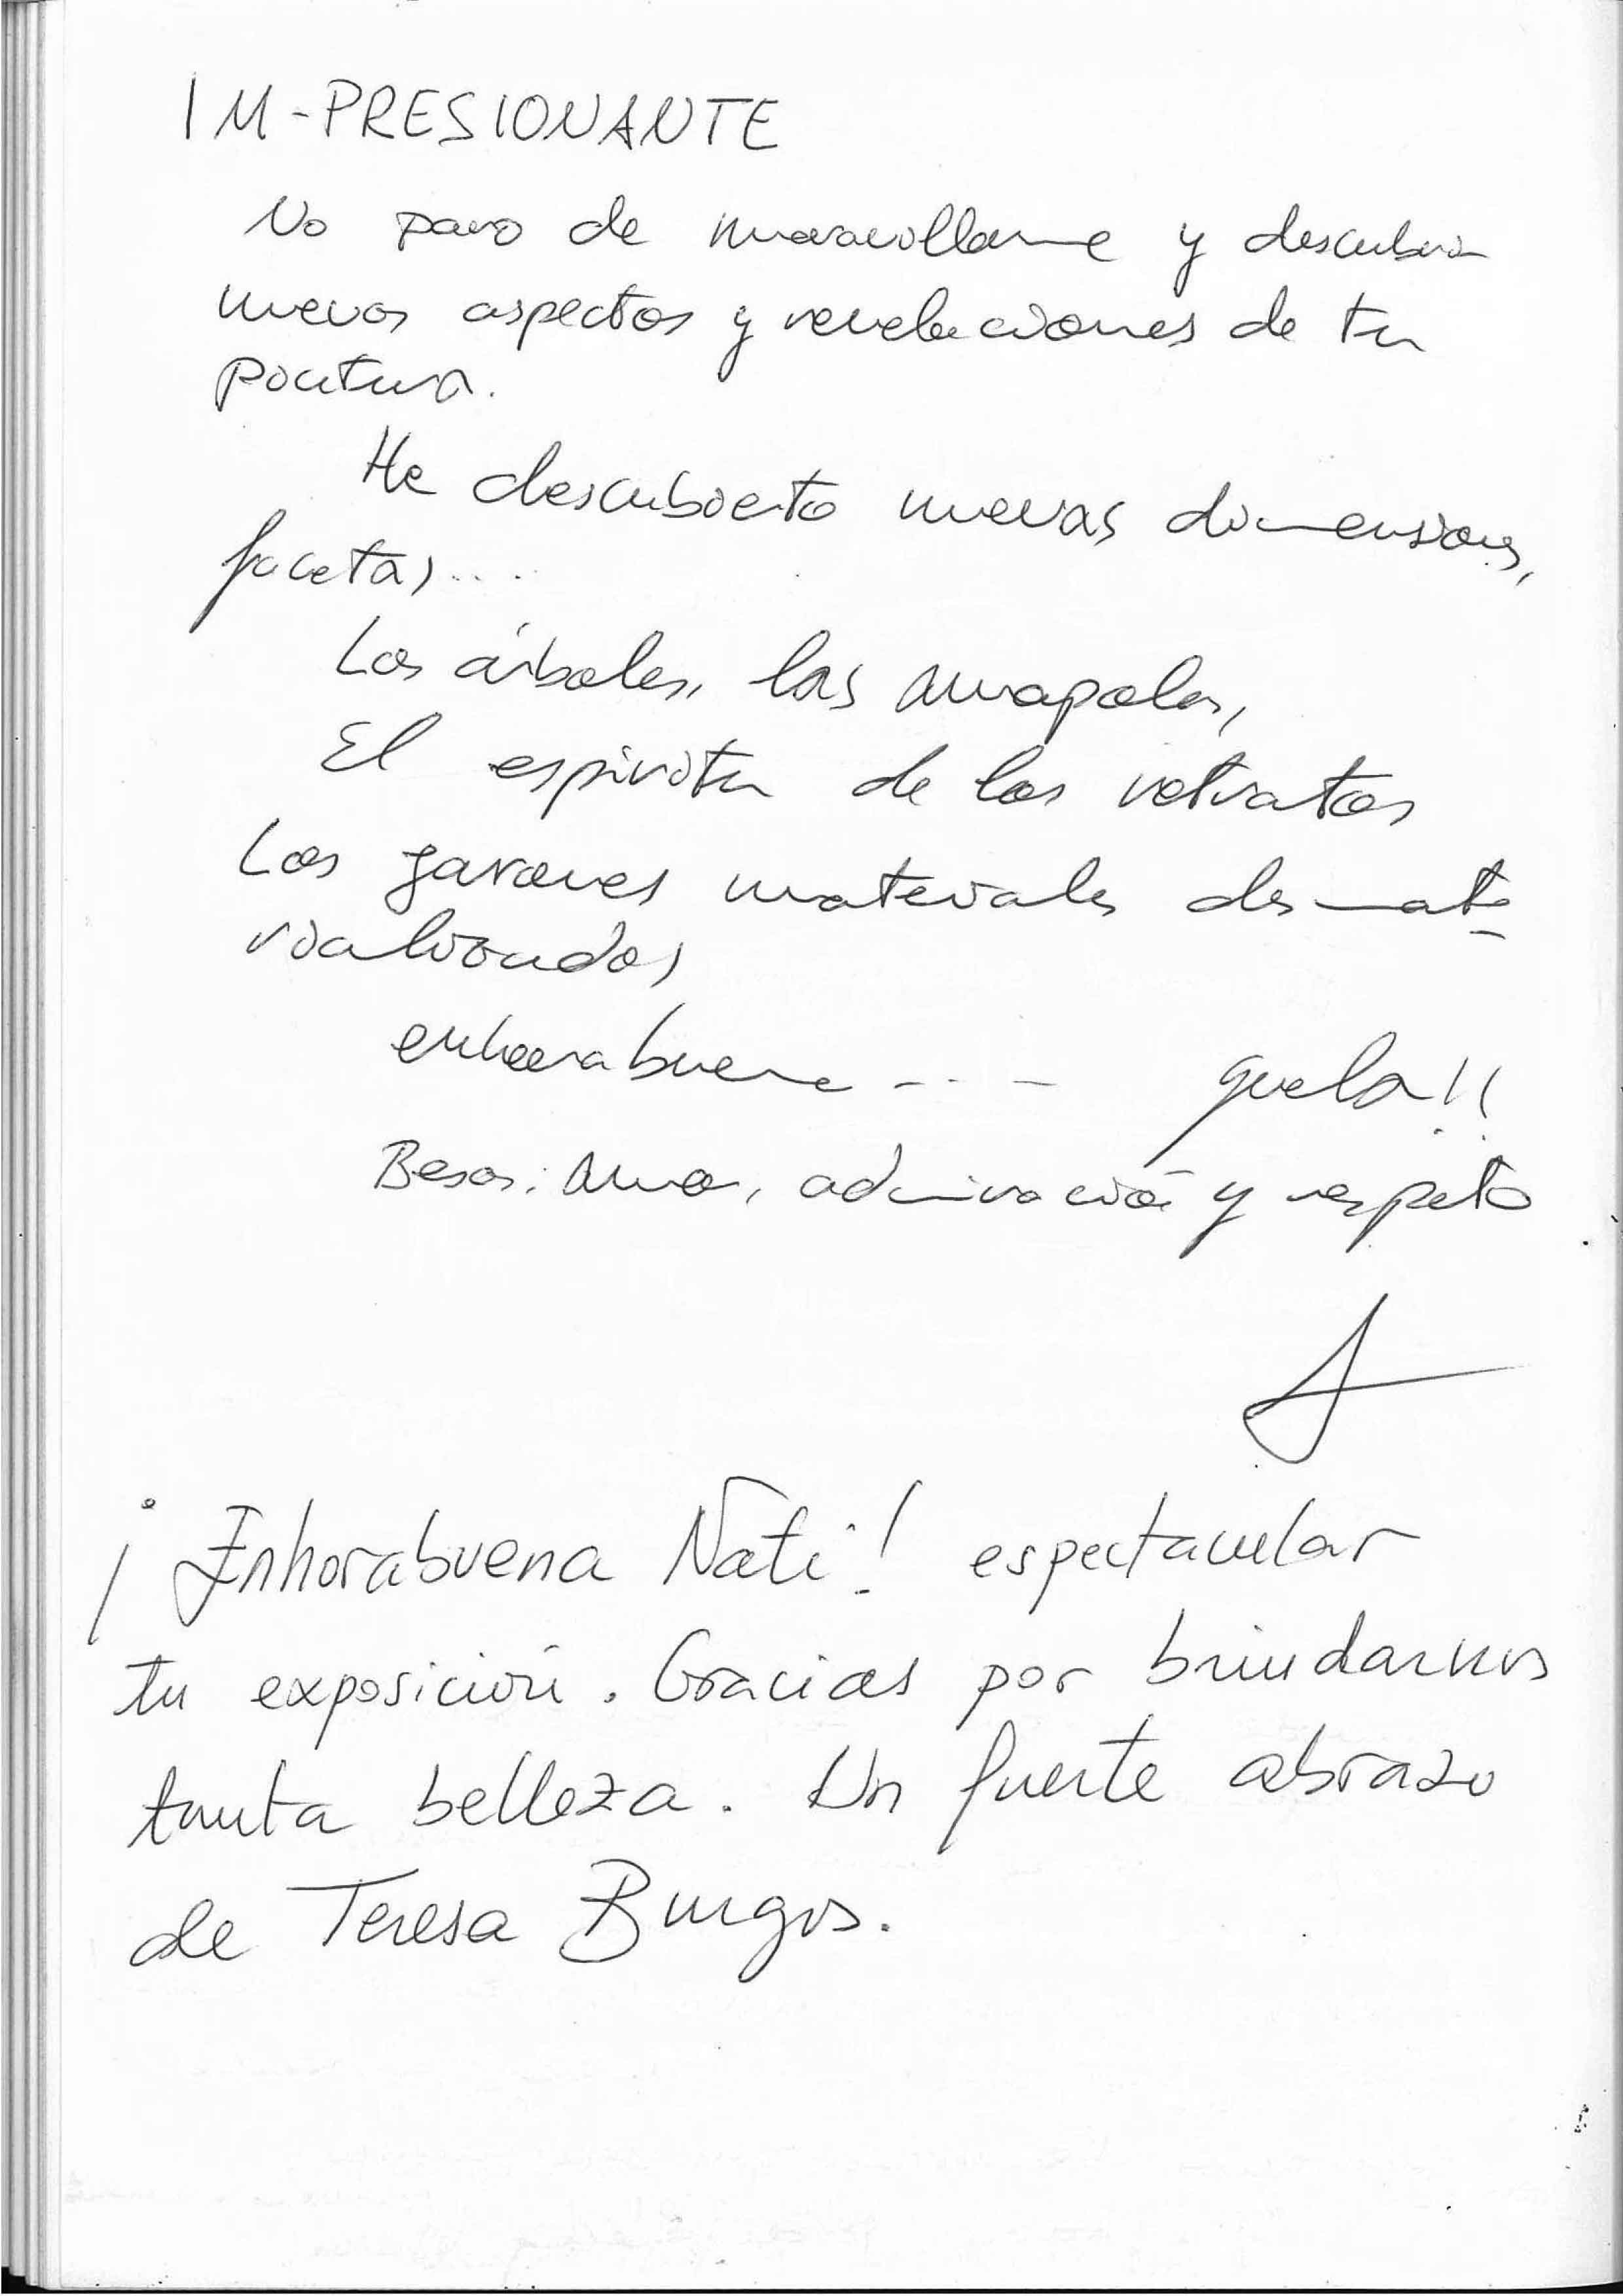 IM-PRESIONANTE
No paro de maravillarme y descubrir
nuevos aspectos y revelaciones de tu
pintura.
He descubierto nuevas dimensiones,
facetas....
Los árboles, las amapolas,
El espíritu de los retratos
Los jarrones materiales desmate
rializados
enhorabuena - - - guela!!
Besos: Amor, admiración y respeto
¡Enhorabuena Nati! espectacular
tu exposición. Gracias por brindarnos
tanta belleza. Un fuerte abrazo
de Teresa Burgos.